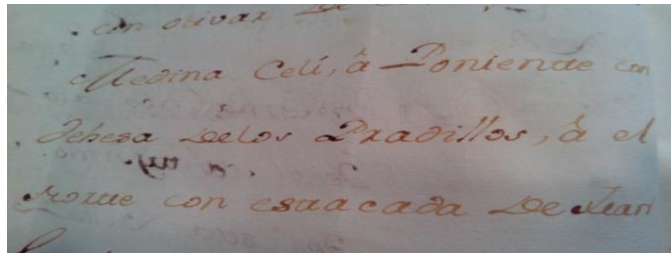 con olivar De
Medina Celi, â Poniente con
dehesa Delos Pradillos, â el
Norte con estacada De Juan